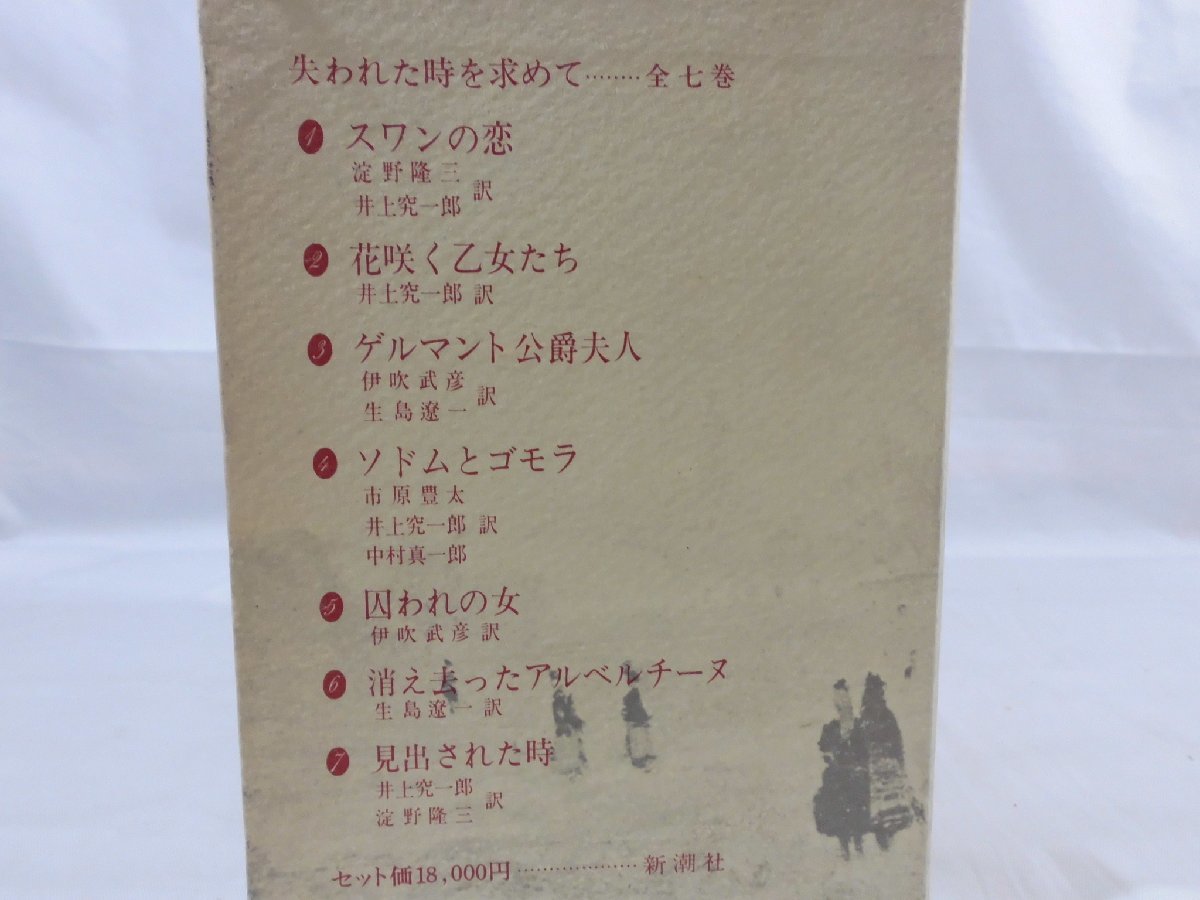 失われた時を求めて………全七巻
1 スワンの恋
淀野隆三
井上究一郎 訳
2 花咲く乙女たち
井上究一郎 訳
3 ゲルマント公爵夫人
伊吹武彦
生島遼一 訳
4 ソドムとゴモラ
市原豊太
井上究一郎 訳
中村真一郎
5 囚われの女
伊吹武彦 訳
6 消え去ったアルベルチーヌ
生島遼一 訳
7 見出された時
井上究一郎
淀野隆三 訳
セット価18,000円…………………新潮社